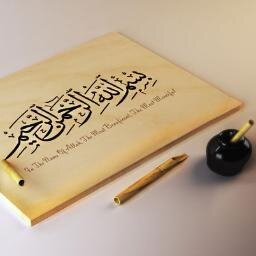 بسم الله الرحمن الرحيم
In The Name Of Allah, The Most Beneficent, The Most Merciful